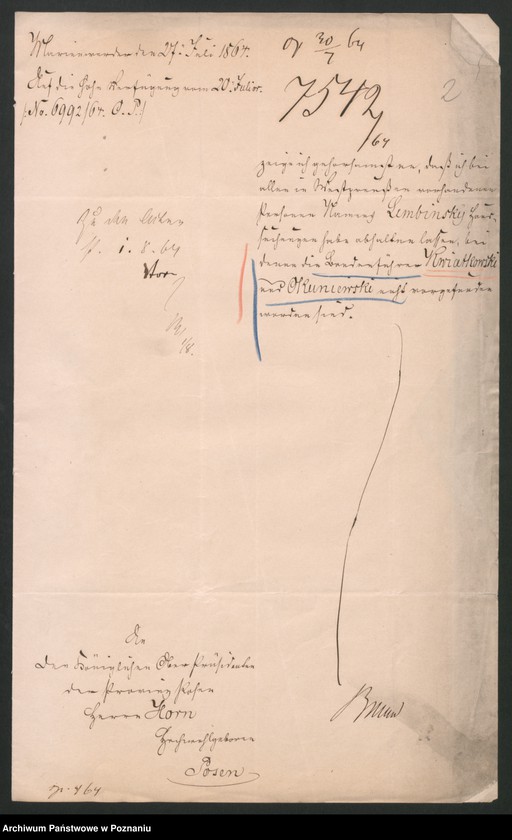 Marienwerder den 27. Juli 1864.
Auf die hohe Verfügung vom 20. Juli cr.
(No. 6992/64. O. P.)
pr 30/7 64
7542/64
2
zeige ich gehorsamst an, daß ich bei
allen in Westpreußen vorhandenen
Personen Namens Lembinsky Haus-
suchungen habe abhalten lassen, bei
denen die Bandenführer Kwiatkowski
und Okuniewski nicht vorgefunden
worden sind.
Zu den Acten
P. 1. 8. 64
1/8.
An
den Königlichen Ober-Präsidenten
der Provinz Posen
Herrn Horn
Hochwohlgeboren
Posen
Archiwum Państwowe w Poznaniu